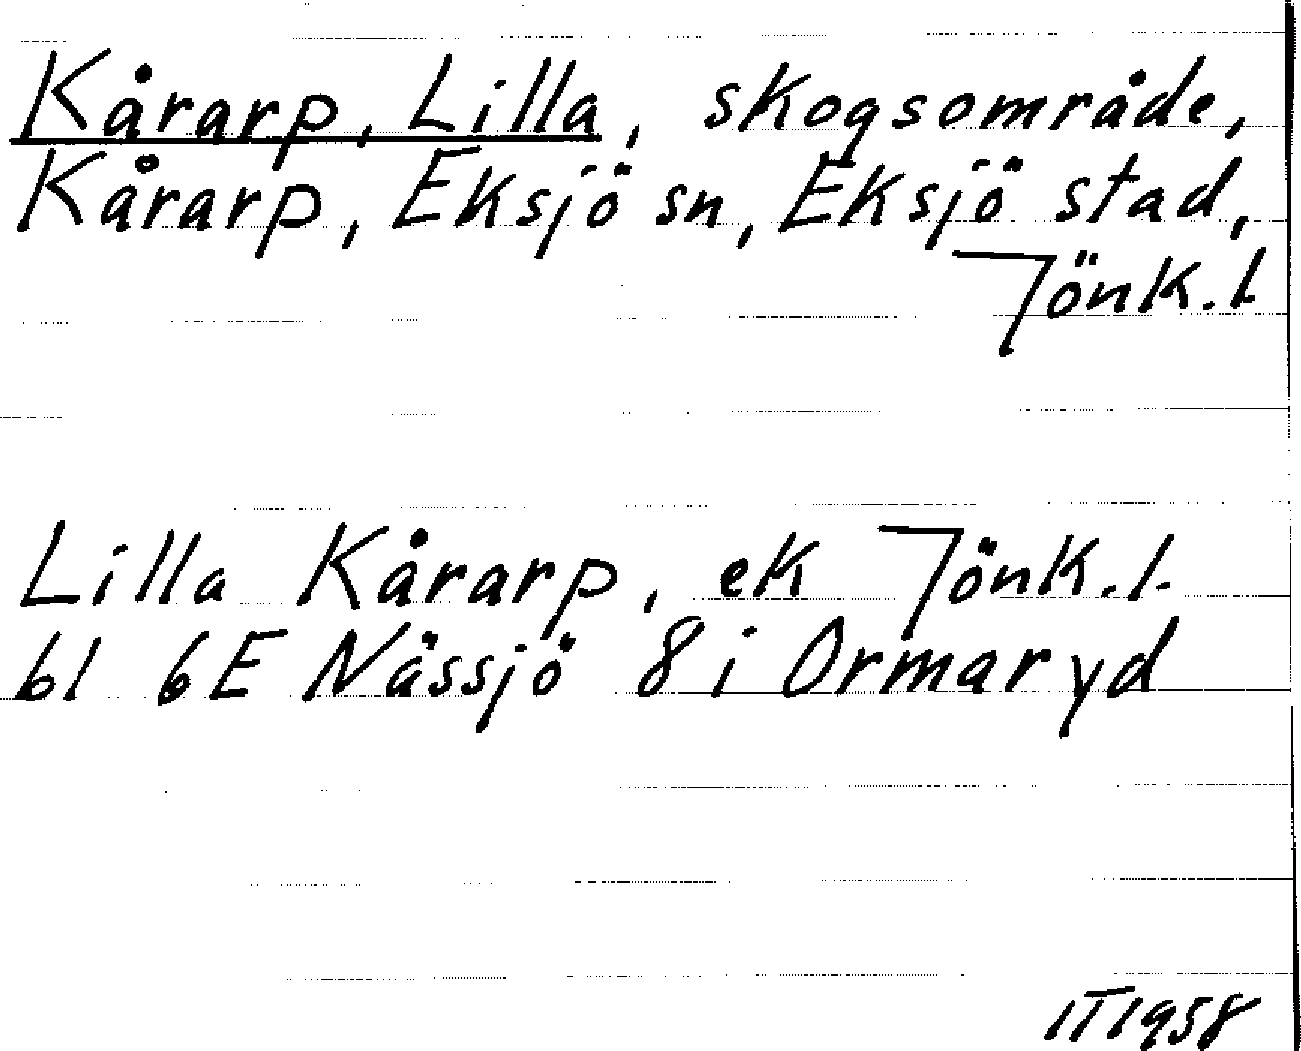 Kårarp, Lilla, skogsområde,
Kårarp, Eksjö sn, Eksjö stad,
Jönk.l
Lilla Kårarp, ek Jönk.l.
bl 6E Nässjö 8i Ormaryd
IT1958